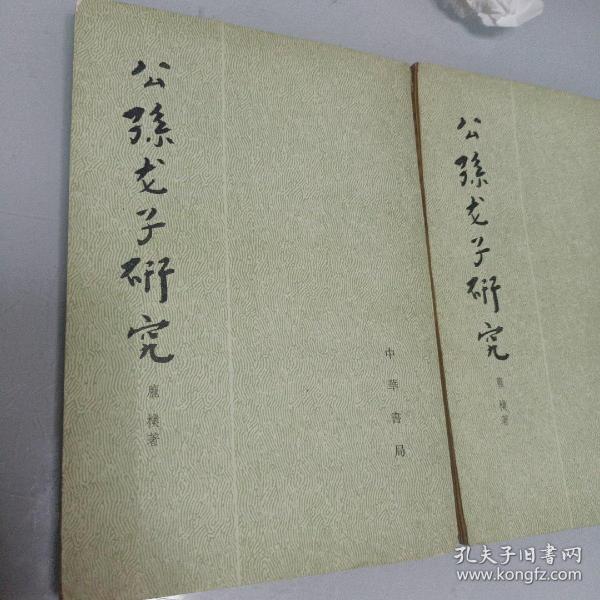 公孫龙子研究
龐樸著
中華書局
公孫龙子研究
龐樸著
孔夫子旧书网
www.kongfz.com